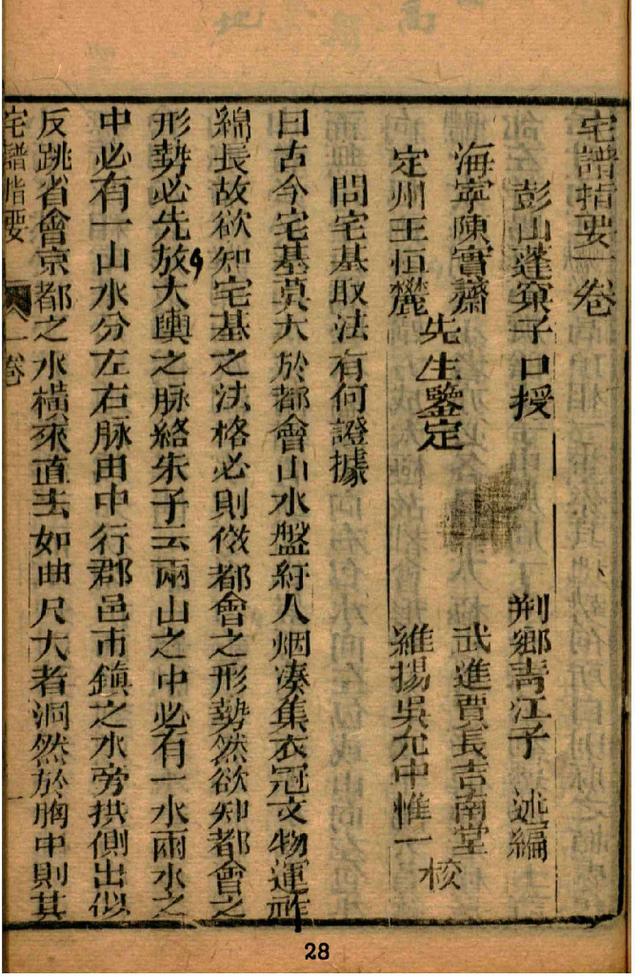 宅譜指要一卷
彭山蓬窠子口授 荆鄉青江子 述編
海寧陳實齋 武進賈長吉南堂
先生鑒定 校
定州王恒麓 維揚吳允中惟一
問宅基取法有何證據
曰古今宅基莫大於都會山水盤紆人烟凑集衣冠文物運祚
綿長故欲知宅基之法格必則傚都會之形勢然欲知都會之
形勢必先放大輿之脉絡朱子云兩山之中必有一水兩水之
中必有一山水分左右脉由中行郡邑市鎮之水旁拱側出似
反跳省會京都之水橫來直去如曲尺大者洞然於胸中則其
宅譜指要 一卷
28